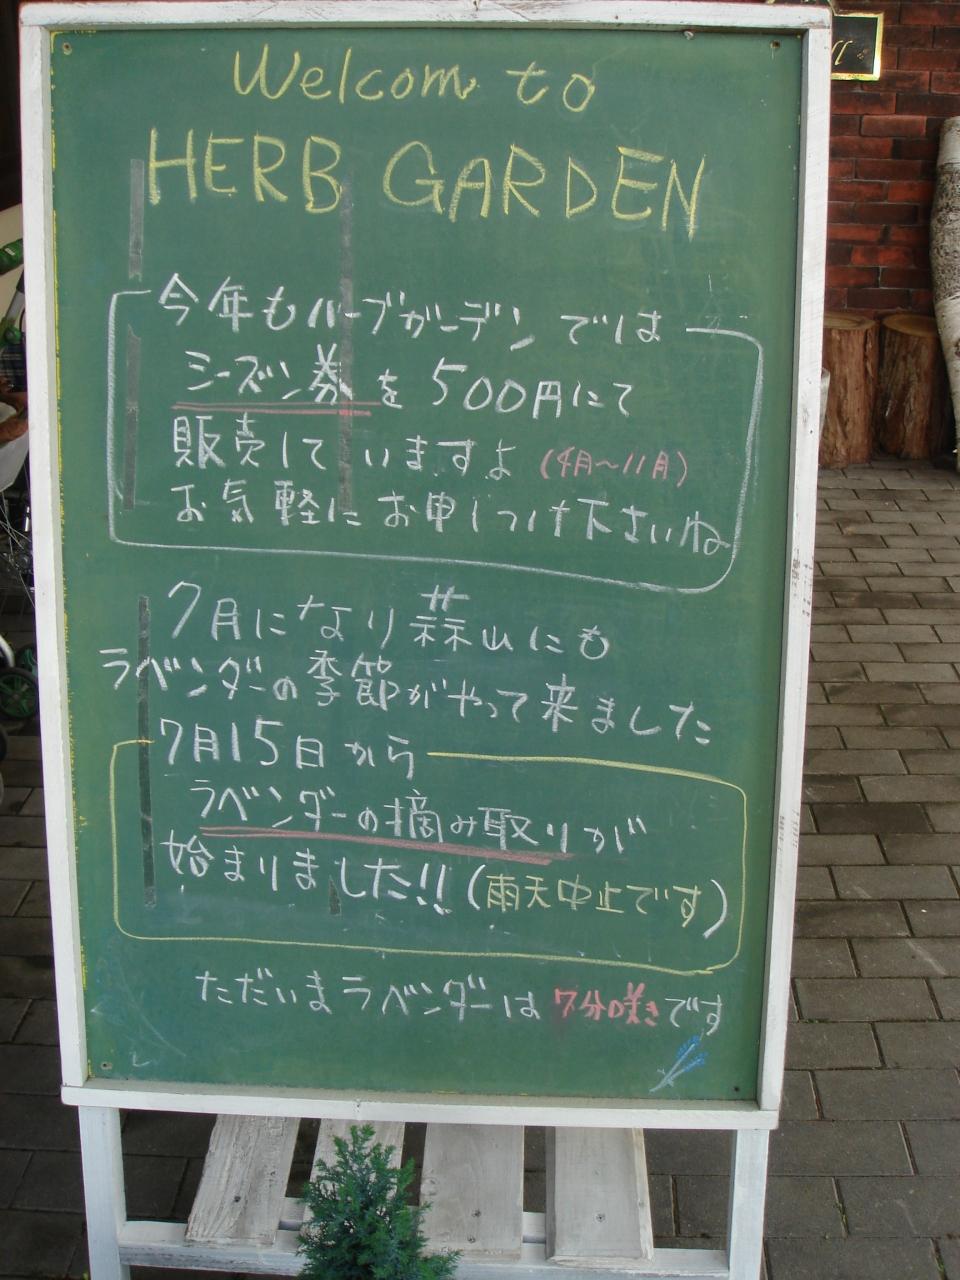 Welcom to
HERB GARDEN
今年もハーブガーデンでは
シーズン券を500円にて
販売していますよ(4月～11月)
お気軽にお申しつけ下さいね
7月になり蒜山にも
ラベンダーの季節がやって来ました
7月15日から
ラベンダーの摘み取りが
始まりました!!(雨天中止です)
ただいまラベンダーは7分咲きです